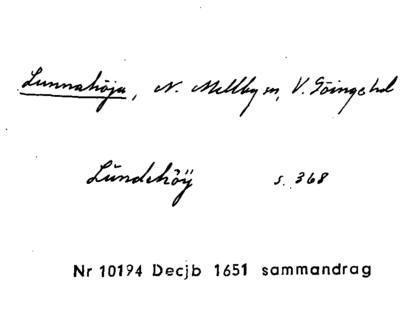 Lunnahöja, N. Mellby sn, V. Göinge hd
Lŭndehöÿ s. 368
Nr 10194 Decjb 1651 sammandrag